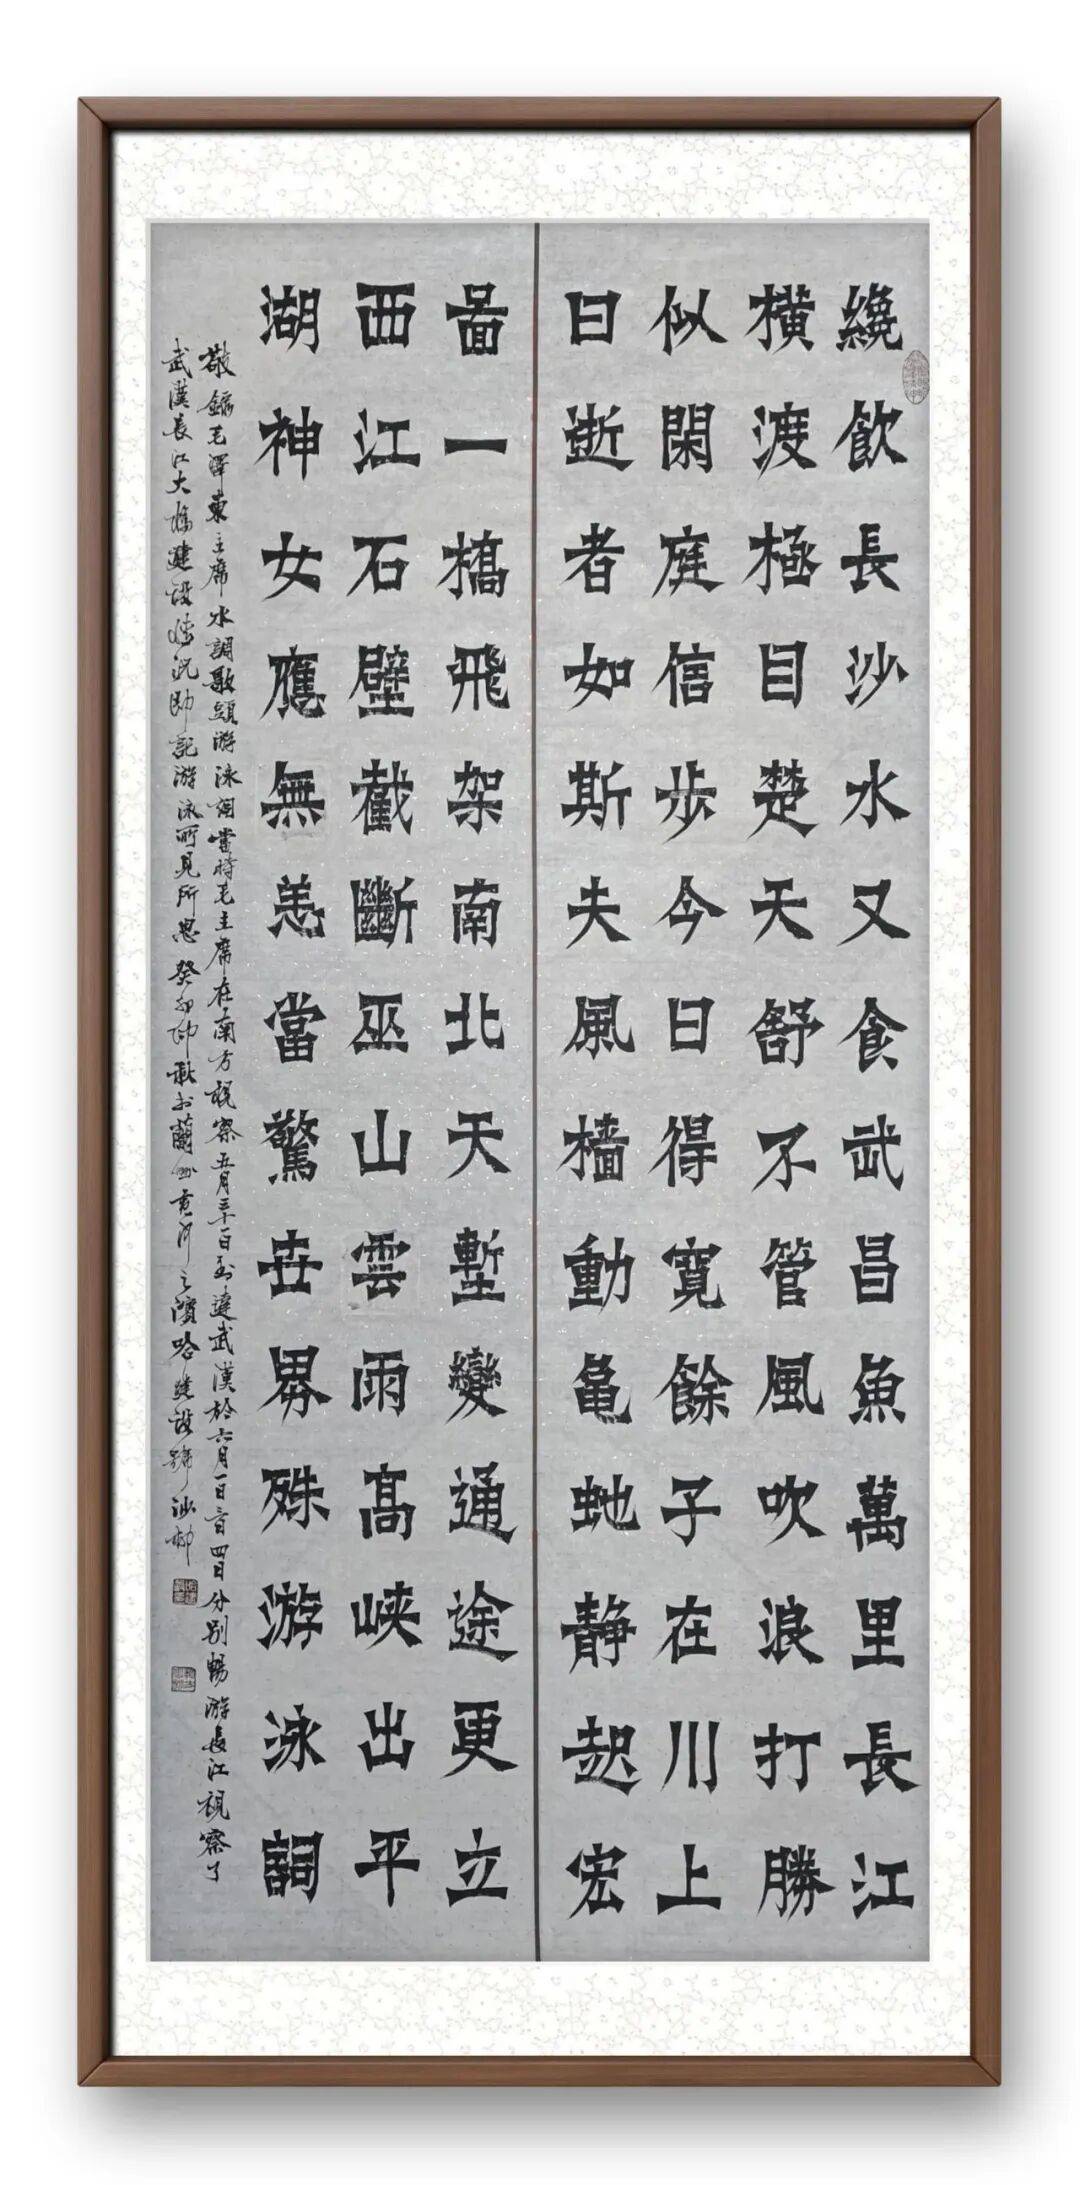 纔飲長沙水又食武昌魚萬里長江
橫渡極目楚天舒不管風吹浪打勝
似閑庭信步今日得寬餘子在川上
曰逝者如斯夫風檣動龜蛇靜起宏
啚一橋飛架南北天塹變通途更立
西江石壁截斷巫山雲雨高峽出平
湖神女應無恙當驚世界殊游泳詞
敬錄毛澤東主席水調歌頭游泳詞當時毛主席在南方視察五月三十一日到達武漢於六月一日三日四日分別暢游長江視察了
武漢長江大橋建設情況即記游泳所見所思癸卯仲秋於蘭州黃河之濱